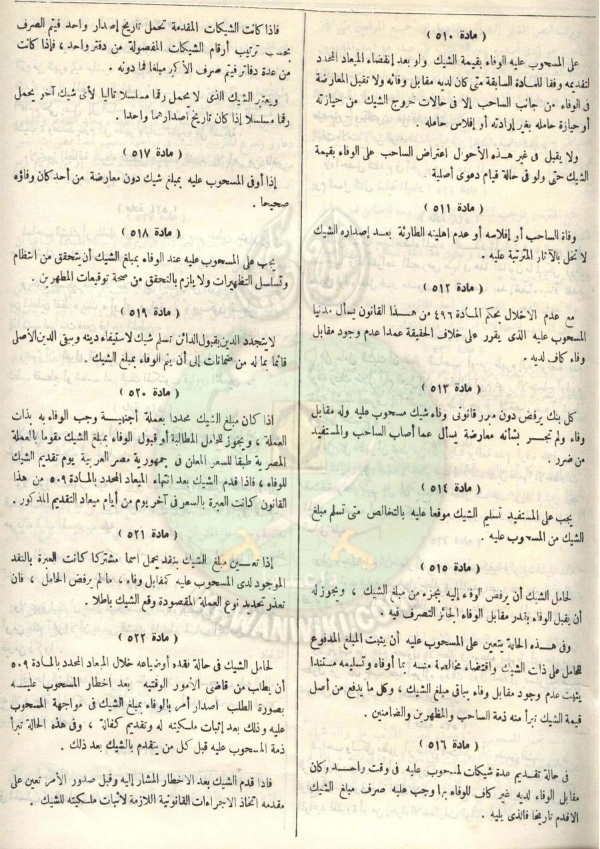 ( مادة ٥١٠ )
على المسحوب عليه الوفاء بقيمة الشيك ولو بعد إنقضاء الميعاد المحدد
لتقديمه وفقا للمادة السابقة متى كان لديه مقابل وفائه ولا تقبل المعارضة
فى الوفاء من جانب الساحب إلا فى حالات خروج الشيك من حيازته
أو حيازة حامله بغير إرادته أو إفلاس حامله .
ولا يقبل فى غير هذه الأحوال اعتراض الساحب على الوفاء بقيمة
الشيك حتى ولو فى حالة قيام دعوى أصلية .
( مادة ٥١١ )
وفاة الساحب أو إفلاسه أو عدم اهليته الطارئة بعد إصداره الشيك
لا تخل بالآثار المترتبة عليه .
( مادة ٥١٢ )
مع عدم الاخلال بحكم المادة ٤٩٦ من هذا القانون يسأل مدنيا
المسحوب عليه الذى يقرر على خلاف الحقيقة عمدا عدم وجود مقابل
وفاء كاف لديه .
( مادة ٥١٣ )
كل بنك يرفض دون مبرر قانونى وفاء شيك مسحوب عليه وله مقابل
وفاء ولم تجر بشأنه معارضة يسأل عما أصاب الساحب والمستفيد
من ضرر .
( مادة ٥١٤ )
يجب على المستفيد تسليم الشيك موقعا عليه بالتخالص متى تسلم مبلغ
الشيك من المسحوب عليه .
( مادة ٥١٥ )
لحامل الشيك أن يرفض الوفاء إليه بجزء من مبلغ الشيك ، ويجوز له
أن يقبل الوفاء بقدر مقابل الوفاء الجائز التصرف فيه .
وفى هذه الحالة يتعين على المسحوب عليه أن يثبت المبلغ المدفوع
للحامل على ذات الشيك واقتضاء مخالصة منه بما أوفاه وتسليمه مستندا
يثبت عدم وجود مقابل وفاء بباقى مبلغ الشيك ، وكل ما يدفع من أصل
قيمة الشيك تبرأ منه ذمة الساحب والمظهرين والضامنين .
( مادة ٥١٦ )
فى حالة تقديم عدة شيكات لمسحوب عليه فى وقت واحد وكان
مقابل الوفاء لديه غير كاف للوفاء بها وجب عليه صرف مبلغ الشيك
الاقدم تاريخا فالذى يليه .
فاذا كانت الشيكات المقدمة تحمل تاريخ إصدار واحد فيتم الصرف
بحسب ترتيب أرقام الشيكات المفصولة من دفتر واحد ، فإذا كانت
من عدة دفاتر فيتم صرف الأكبر مبلغا فما دونه .
ويعتبر الشيك الذى لا يحمل رقما مسلسلا تاليا لأى شيك آخر يحمل
رقما مسلسلا إذا كان تاريخ أصدارهما واحدا .
( مادة ٥١٧ )
إذا أوفى المسحوب عليه بمبلغ شيك دون معارضة من أحد كان وفاؤه
صحيحا .
( مادة ٥١٨ )
يجب على المسحوب عليه عند الوفاء بمبلغ الشيك أن يتحقق من انتظام
وتسلسل التظهيرات ولا يلزم بالتحقق من صحة توقيعات المظهرين .
( مادة ٥١٩ )
لا يتجدد الدين بقبول الدائن تسلم شيك لاستيفاء دينه ويبقى الدين الأصلى
قائما بما له من ضمانات إلى أن يتم الوفاء بمبلغ الشيك .
( مادة ٥٢٠ )
اذا كان مبلغ الشيك محددا بعملة أجنبية وجب الوفاء به بذات
العملة ، ويجوز للحامل المطالبة أو قبول الوفاء بمبلغ الشيك مقوما بالعملة
المصرية طبقا للسعر المعلن فى جمهورية مصر العربية يوم تقديم الشيك
للوفاء ، فاذا قدم الشيك بعد انتهاء الميعاد المحدد بالمادة ٥٠٩ من هذا
القانون كانت العبرة بالسعر فى آخر يوم من أيام ميعاد التقديم المذكور .
( مادة ٥٢١ )
إذا تعين مبلغ الشيك بنقد يحمل اسما مشتركا كانت العبرة بالنقد
الموجود لدى المسحوب عليه كمقابل وفاء ، ما لم يرفض الحامل ، فان
تعذر تحديد نوع العملة المقصودة وقع الشيك باطلا .
( مادة ٥٢٢ )
لحامل الشيك فى حالة فقده أوضياعه خلال الميعاد المحدد بالمادة ٥٠٩
أن يطالب من قاضى الأمور الوقتية بعد اخطار المسحوب عليه
بصورة الطلب أصدار أمر بالوفاء بمبلغ الشيك فى مواجهة المسحوب
عليه وذلك بعد إثبات ملكيته له وتقديم كفالة ، وفى هذه الحالة تبرأ
ذمة المسحوب عليه قبل كل من يتقدم بالشيك بعد ذلك .
فاذا قدم الشيك بعد الاخطار المشار إليه وقبل صدور الأمر تعين على
مقدمه اتخاذ الاجراءات القانونية اللازمة لاثبات ملكيته للشيك .